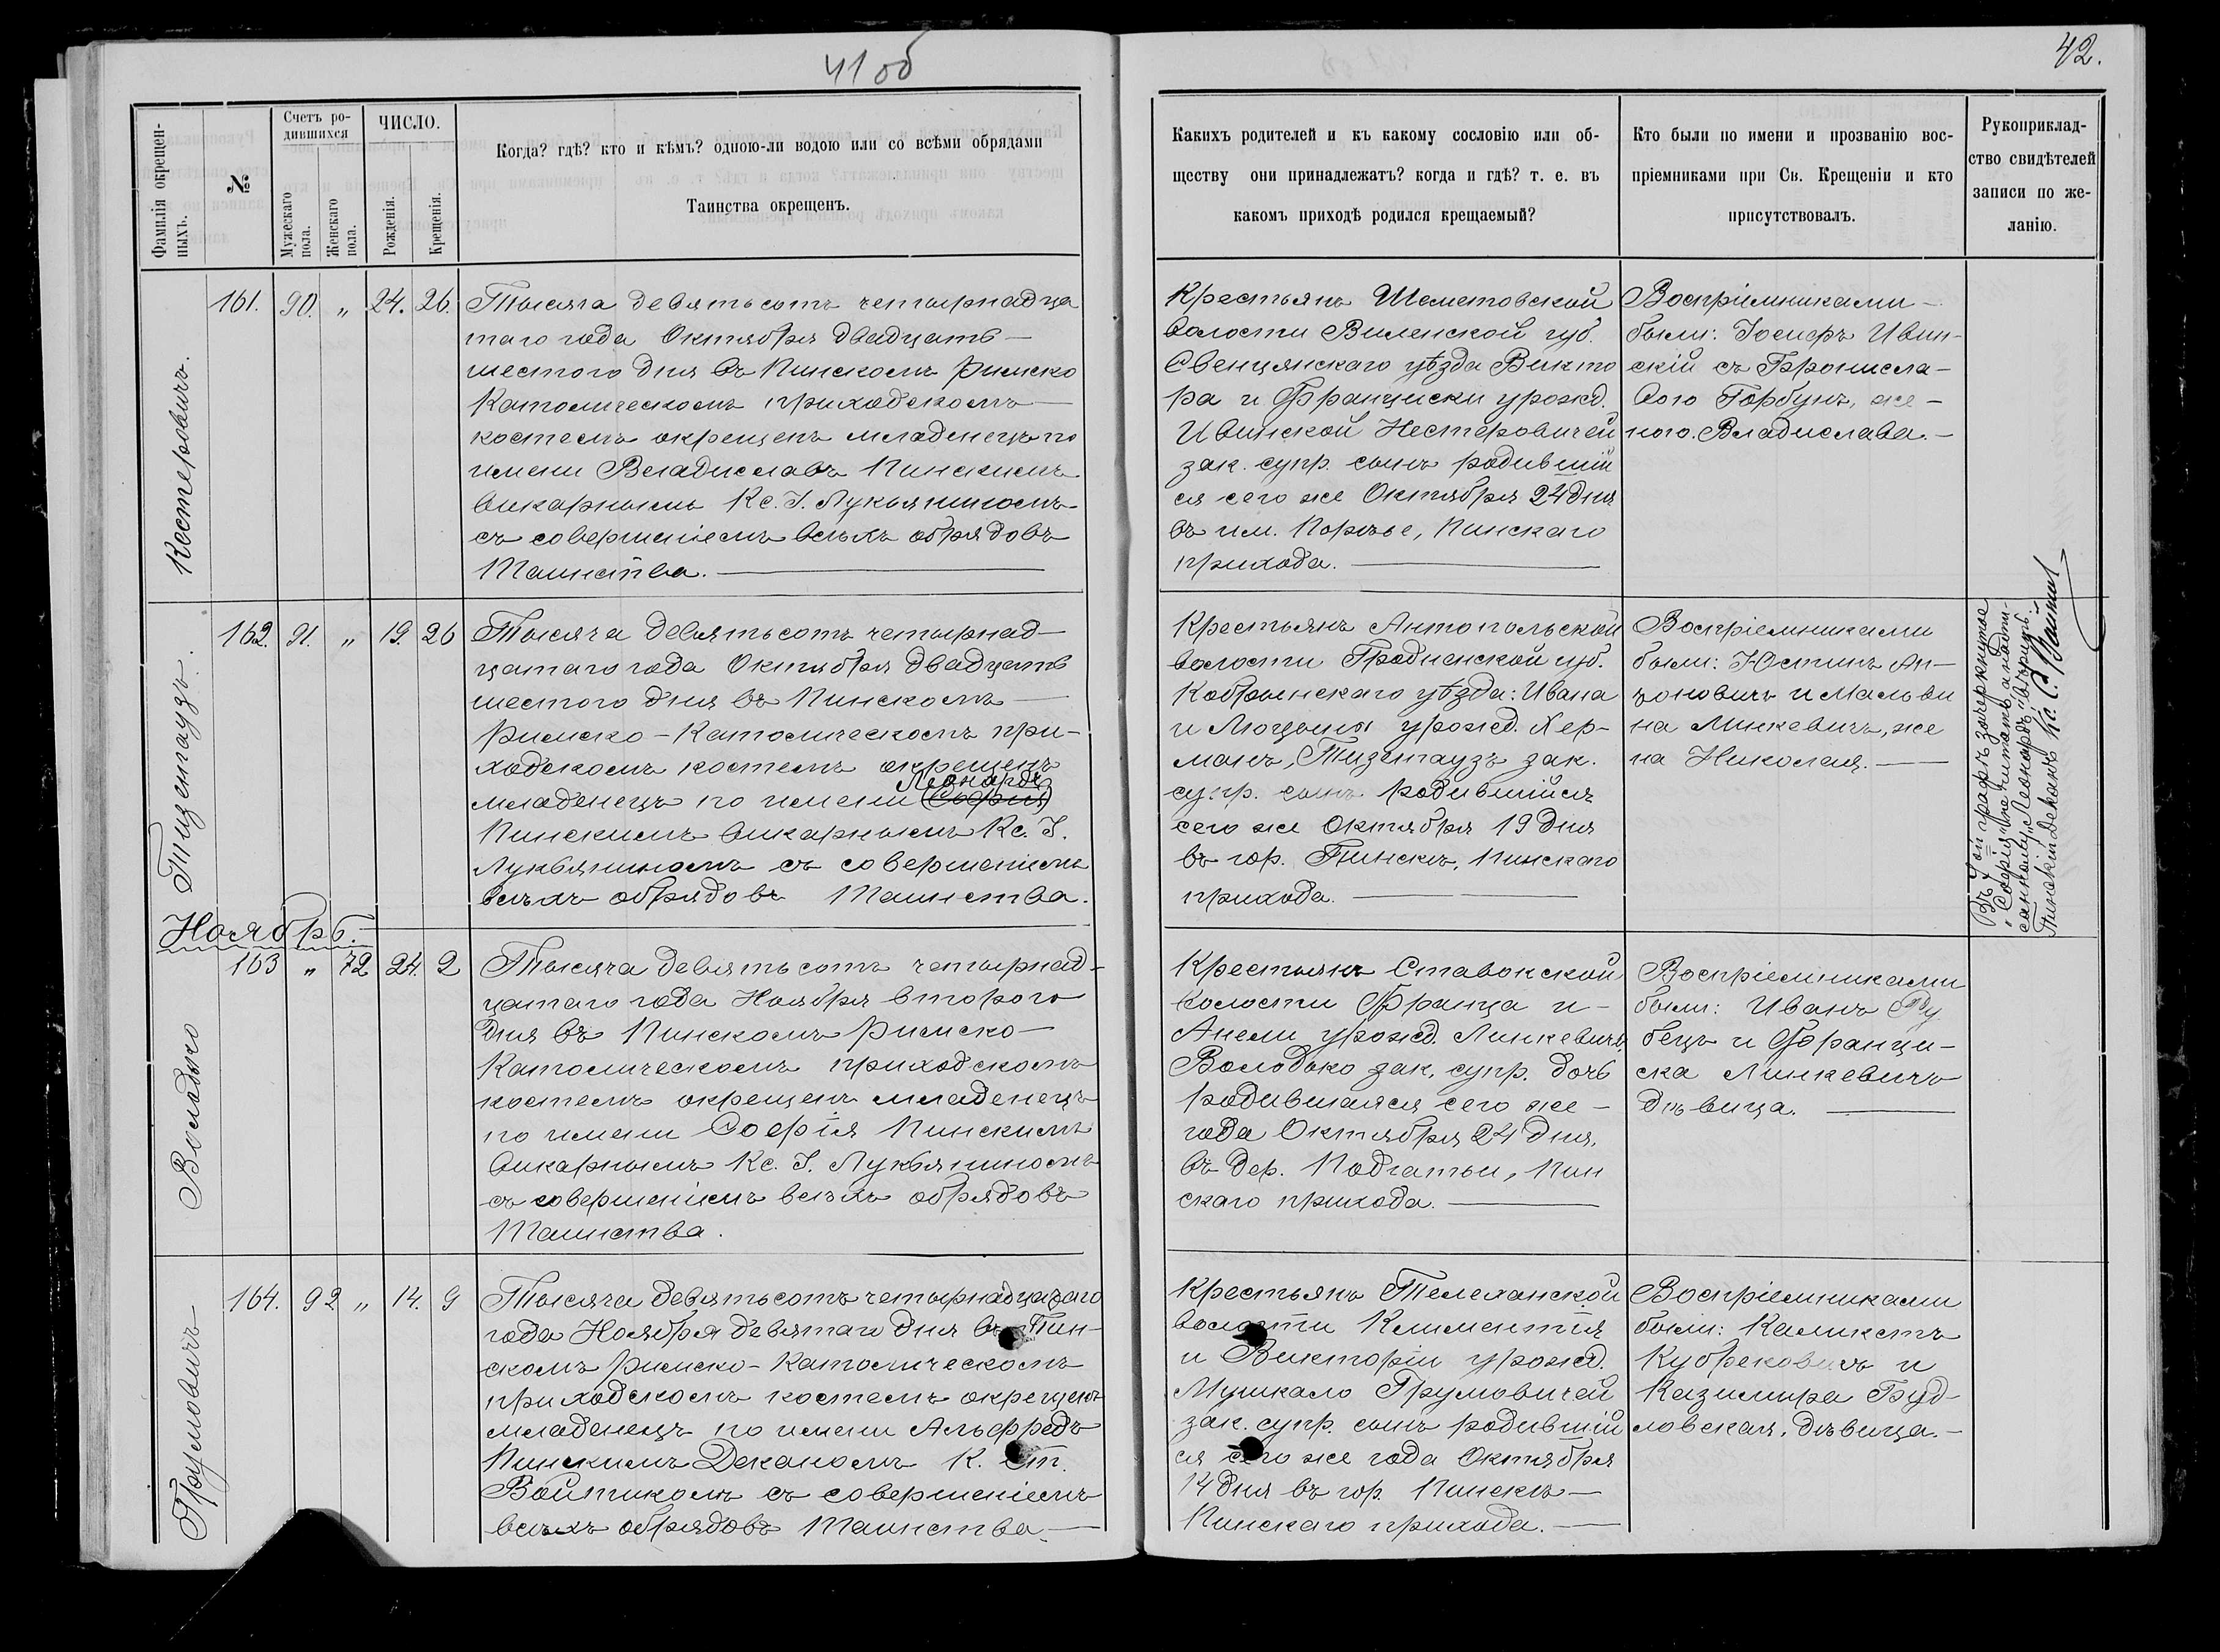 41 об
42.
Фамилія окрещен-
ныхъ.
№
Счетъ ро-
дившихся
Мужескаго
пола.
Женскаго
пола.
ЧИСЛО.
Рожденія.
Крещенія.
Когда? гдѣ? кто и кѣмъ? одною-ли водою или со всѣми обрядами
Таинства окрещенъ.
Какихъ родителей и къ какому сословію или об-
ществу они принадлежатъ? когда и гдѣ? т. е. въ
какомъ приходѣ родился крещаемый?
Кто были по имени и прозванію вос-
пріемниками при Св. Крещеніи и кто
присутствовалъ.
Рукоприклад-
ство свидѣтелей
записи по же-
ланію.
161. 90. " 24. 26.
Тысяча девятьсотъ четырнадца
таго года Октября двадцать
шестого дня въ Пинскомъ Римско
Католическомъ приходскомъ
костелѣ окрещенъ младенецъ по
имени Владиславъ Пинскимъ
викарнымъ Кс. І. Лукьяниномъ
съ совершеніемъ всѣхъ обрядовъ
Таинства.
Крестьянъ Шеметовской
волости Виленской губ.
Свенцянскаго уѣзда Викто
ра и Франциски урожд.
Ивинской Нестеровичей
зак. супр. сынъ родившій
ся сего же Октября 24 дня
въ им. Порѣчье, Пинскаго
прихода.
Воспріемниками
были: Іосифъ Ивин-
скій съ Бронисла-
вою Горбунъ, же-
ною Владислава.
Тиценгаузъ.
162. 91. " 19. 26
Тысяча девятьсотъ четырнад-
цатаго года Октября двадцать
шестого дня въ Пинскомъ
Римско-Католическомъ при-
ходскомъ костелѣ окрещенъ
Леонардъ
младенецъ по имени (Софія)
Пинскимъ викарнымъ Кс. І.
Лукьяниномъ съ совершеніемъ
всѣхъ обрядовъ Таинства.
Крестьянъ Антопольской
волости Гродненской губ.
Кобрынскаго уѣзда: Ивана
и Люцыны урожд. Хер-
манъ, Тизегаузъ зак.
супр. сынъ родившійся
сего же Октября 19 дня
въ гор. Пинскѣ, Пинскаго
прихода.
Воспріемниками
были: Юстинъ Ан-
тоновичъ и Мальви
на Минкевичъ, же
на Николая.
Въ 7ой графѣ зачеркнутое
"Софія" не читать, а надпи-
санному "Леонардъ" вѣрить.
Пинскій Деканъ Кс. С. Войтик
Ноябрь.
Володько
163 " 72 24. 2
Тысяча девятьсотъ четырнад-
цатаго года Ноября второго
дня въ Пинскомъ Римско-
Католическомъ приходскомъ
костелѣ окрещенъ младенецъ
по имени Софія Пинскимъ
викарнымъ Кс. І. Лукьяниномъ
съ совершеніемъ всѣхъ обрядовъ
Таинства.
Крестьянъ Ставокской
волости Франца и
Анели урожд. Линкевичъ,
Володько зак. супр. дочь
родившаяся сего же
года Октября 24 дня.
въ дер. Подгатьи, Пин
скаго прихода.
Воспріемниками
были: Иванъ
и Францы-
ска Линкевичъ
дѣвица.
Грумовичъ
164. 92 " 14. 9
Тысяча девятьсотъ четырнадцатаго
года Ноября девятаго дня въ Пин-
скомъ Римско-Католическомъ
приходскомъ костелѣ окрещенъ
младенецъ по имени Альфредъ
Пинскимъ Деканомъ К. Ст.
Войтикомъ съ совершеніемъ
всѣхъ обрядовъ Таинства.
Крестьянъ Телеханской
волости Климентія
и Викторіи урожд.
Мушкало Грумовичей
зак. супр. сынъ родившій
ся сего же года Октября
14 дня въ гор. Пинскѣ
Пинскаго прихода.
Воспріемниками
были: Каликстъ
Кубрековичъ и
Казимира Буд-
ловская, дѣвица.